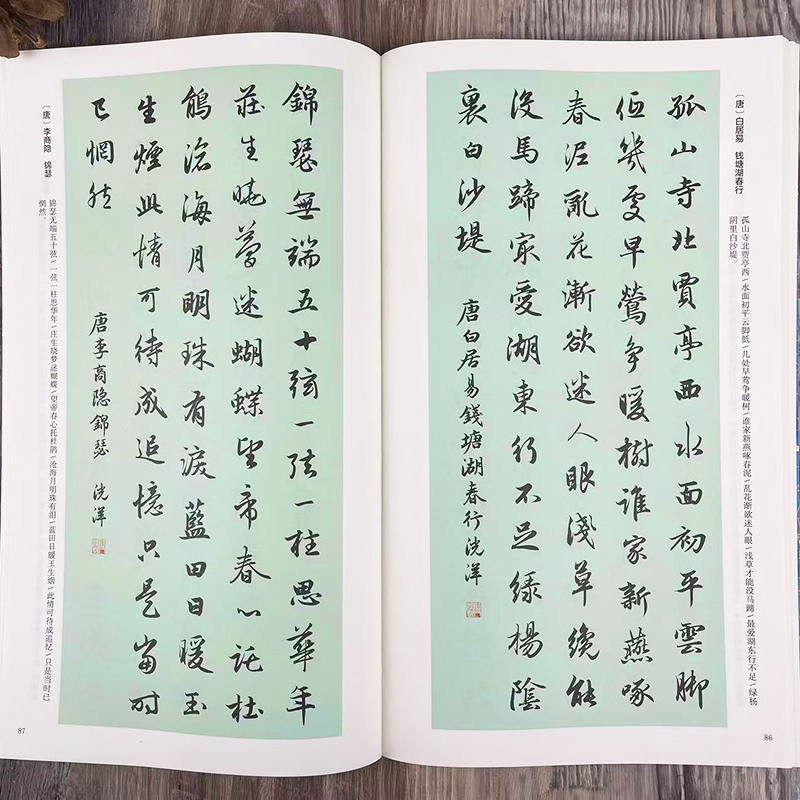 〔唐〕白居易 钱塘湖春行
孤山寺北贾亭西/水面初平云脚低/几处早莺争暖树/谁家新燕啄春泥/乱花渐欲迷人眼/浅草才能没马蹄/最爱湖东行不足/绿杨
阴里白沙堤。
孤山寺北賈亭西水面初平雲脚
低幾處早鶯争暖樹誰家新燕啄
春泥亂花漸欲迷人眼淺草纔能
没馬蹄冣愛湖東行不足緑楊陰
裏白沙堤
唐白居易錢塘湖春行 洸洋
86
錦瑟無端五十弦一弦一柱思華年
莊生曉夢迷蝴蝶望帝春心託杜
鵑滄海月明珠有淚藍田日暖玉
生煙此情可待成追憶只是當時
已惘然
唐李商隐錦瑟 洸洋
〔唐〕李商隐 锦瑟
锦瑟无端五十弦/一弦一柱思华年/庄生晓梦迷蝴蝶/望帝春心托杜鹃/沧海月明珠有泪/蓝田日暖玉生烟/此情可待成追忆/只是当时已
惘然。
87